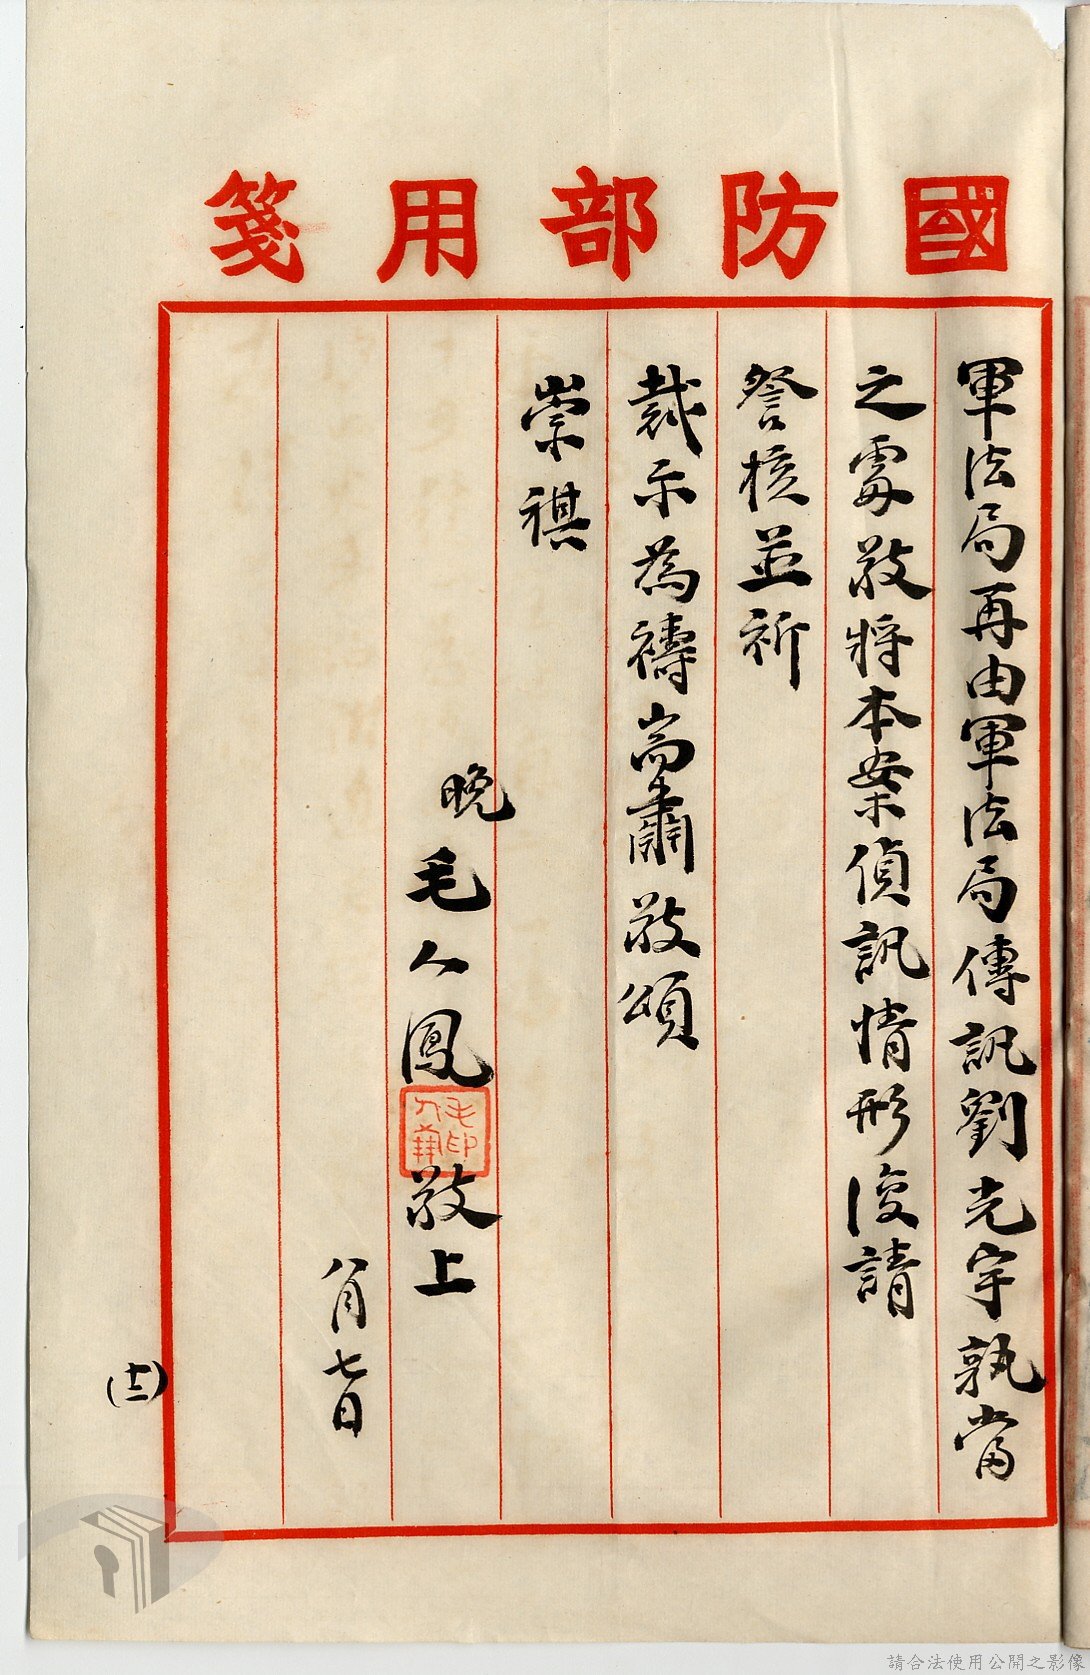 國防部用箋
軍法局再由軍法局傳訊劉光宇孰當
之處敬將本案偵訊情形復請
詧核並祈
裁示為禱耑肅敬頌
崇祺
晚毛人鳳敬上
毛人鳳印
八月七日
(十二)
請合法使用公開之影像